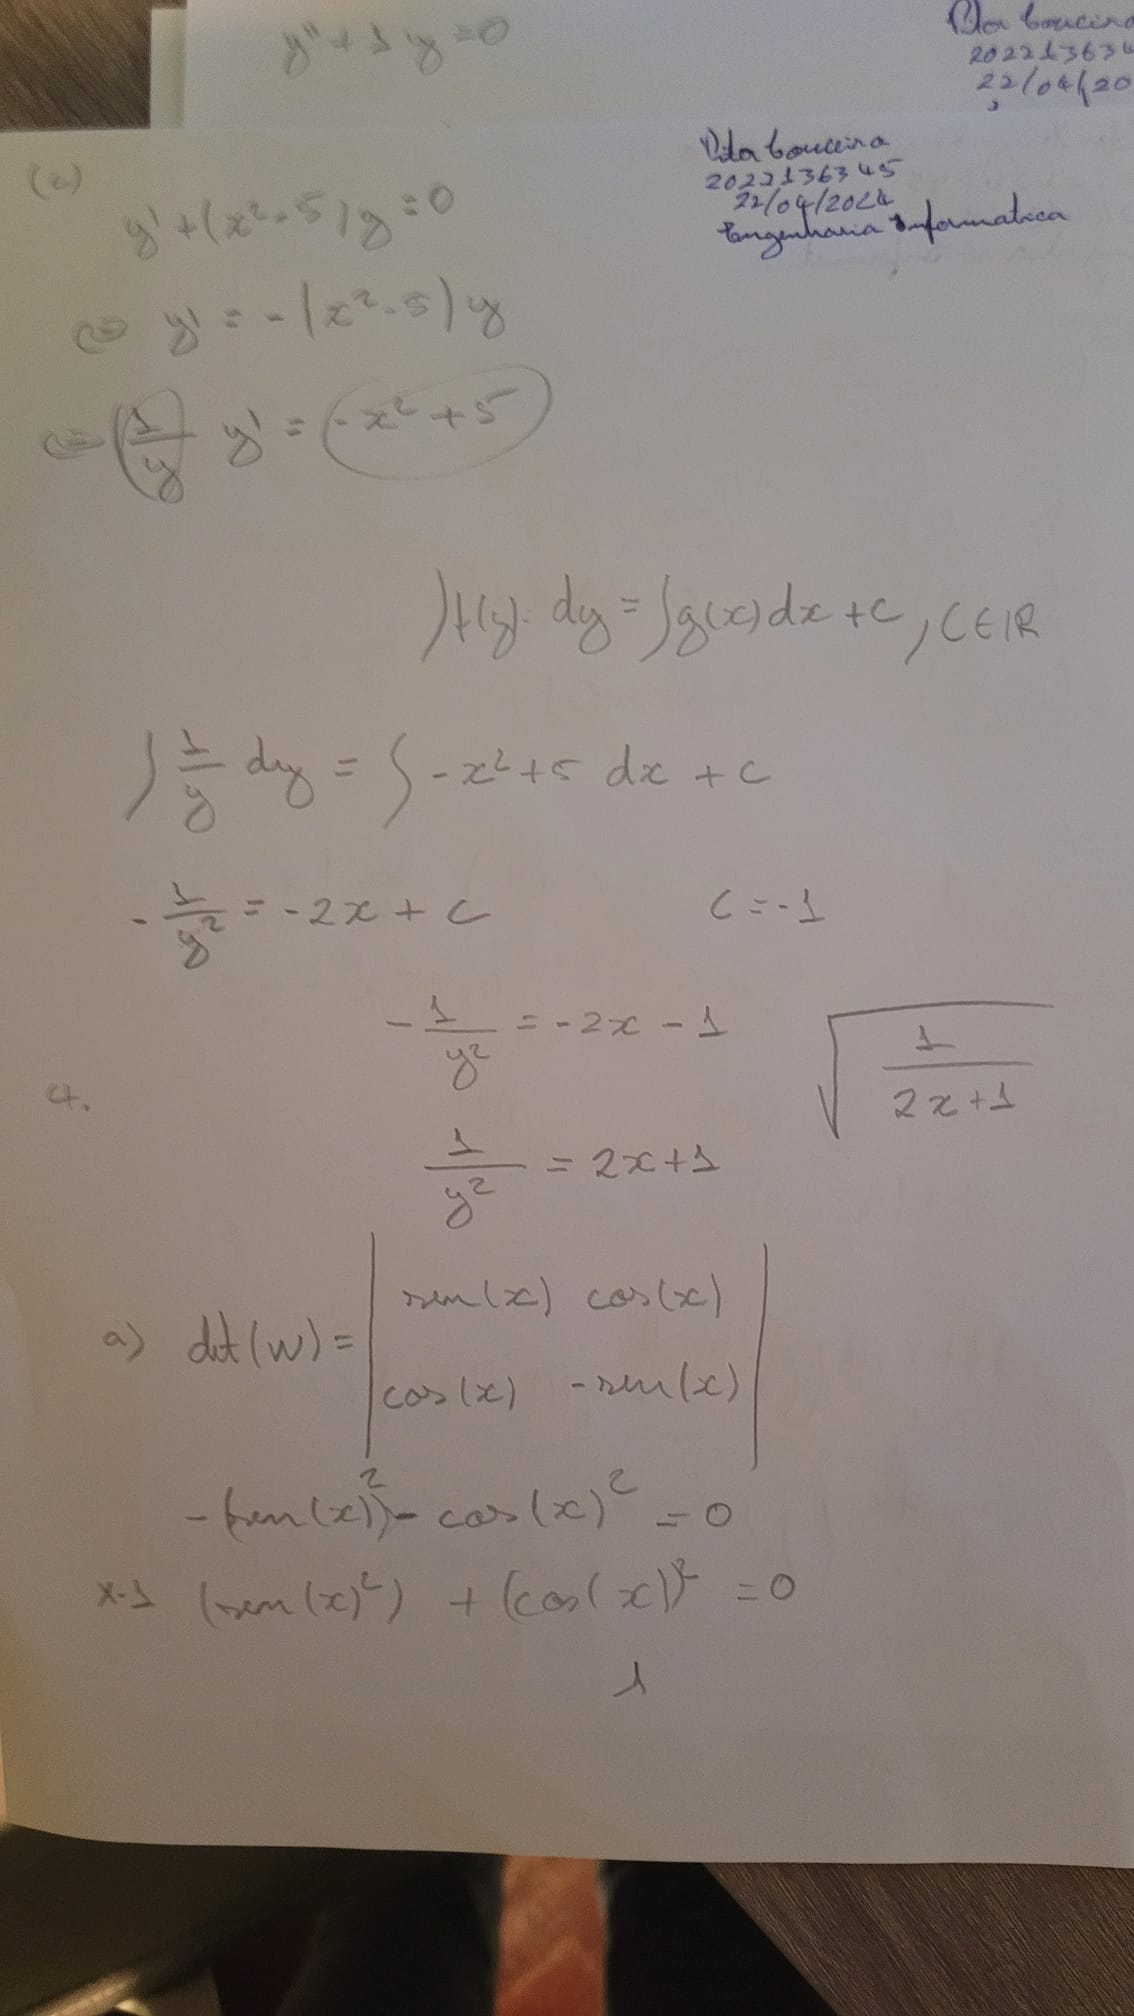 y'' + 1 y = 0
2022136
22/04/20
Rita Gouceira
2022136345
22/04/2024
Engenharia Informatica
y' + (x² - 5) y = 0
⇔ y' = -(x² - 5) y
⇔ (1/y) y' = (-x² + 5)
∫ f(y) . dy = ∫ g(x) dx + c , C ∈ IR
∫ 1/y dy = ∫ -x² + 5 dx + c
- 1/y² = -2x + c
C = -1
- 1/y² = -2x - 1
√(1/(2x+1))
4.
1/y² = 2x+1
a) det(w) = | sen(x) cos(x) |
| cos(x) -sen(x) |
- (sen(x))² - cos(x)² = 0
x-1 (sen(x)²) + (cos(x))² = 0
1